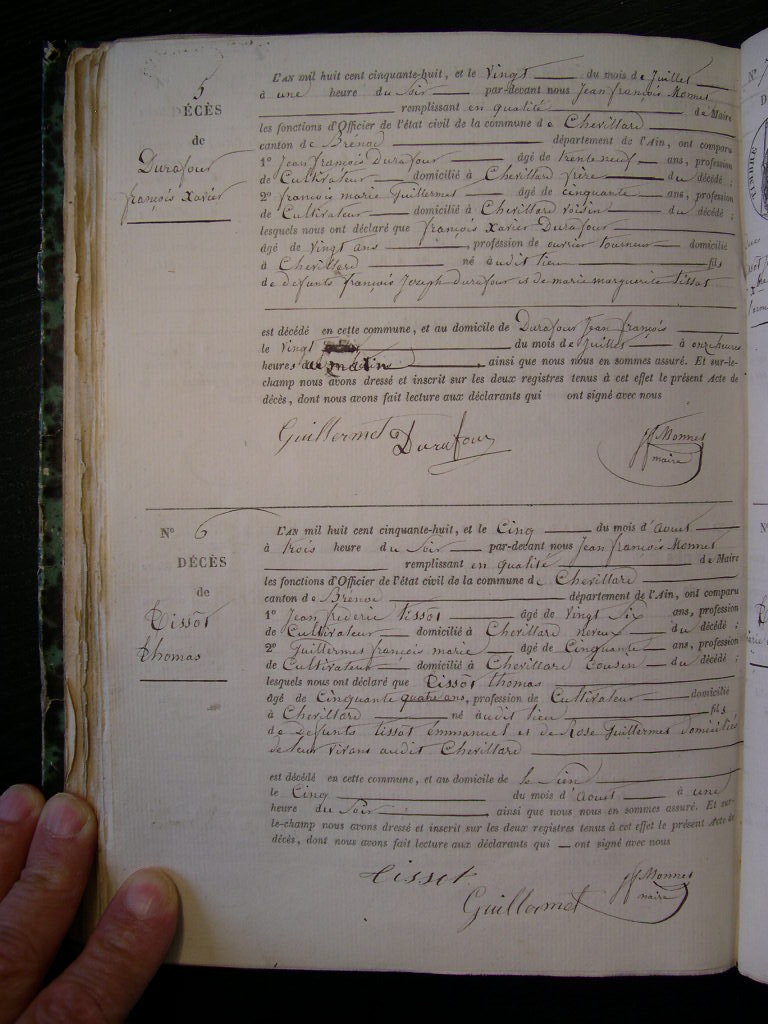 5
DÉCÈS
de
Durafour
françois Xavier
L'AN mil huit cent cinquante-huit, et le Vingt du mois de Juillet
à une heure du Soir par-devant nous Jean françois Monnet
remplissant en qualité de Maire
les fonctions d'Officier de l'état civil de la commune de Chevillard
canton de Brénod département de l'Ain, ont comparu
1° Jean françois Durafour âgé de trente neuf ans, profession
de Cultivateur domicilié à Chevillard frère du décédé ;
2° françois marie Guillermet âgé de cinquante ans, profession
de Cultivateur domicilié à Chevillard voisin du décédé ;
lesquels nous ont déclaré que françois Xavier Durafour
âgé de Vingt ans , profession de ouvrier tourneur domicilié
à Chevillard né audit lieu fils
de défunts françois Joseph Durafour et de marie marguerite tissot
est décédé en cette commune, et au domicile de Durafour Jean françois
le Vingt du mois de Juillet à onze heures
heures du matin , ainsi que nous nous en sommes assuré. Et sur-le-
champ nous avons dressé et inscrit sur les deux registres tenus à cet effet le présent Acte de
décès, dont nous avons fait lecture aux déclarants qui ont signé avec nous
Guillermet Durafour Monnet
maire
N° 6
DÉCÈS
de
Tissot
thomas
L'AN mil huit cent cinquante-huit, et le Cinq du mois d'aout
à trois heure du Soir par-devant nous Jean françois Monnet
remplissant en qualité de Maire
les fonctions d'Officier de l'état civil de la commune de Chevillard
canton de Brénod département de l'Ain, ont comparu
1° Jean frederic tissot âgé de Vingt Six ans, profession
de Cultivateur domicilié à Chevillard neveux du décédé ;
2° Guillermet françois marie âgé de Cinquante ans, profession
de Cultivateur domicilié à Chevillard Cousin du décédé ;
lesquels nous ont déclaré que Tissot thomas
âgé de Cinquante quatre ans, profession de Cultivateur domicilié
à Chevillard né audit lieu fils
de defunts tissot Emmanuel et de Rose Guillermet domiciliés
de leur vivans audit Chevillard
est décédé en cette commune, et au domicile de le Sien
le Cinq du mois d'aout à une
heure du Soir , ainsi que nous nous en sommes assuré. Et sur-
le-champ nous avons dressé et inscrit sur les deux registres tenus à cet effet le présent Acte de
décès, dont nous avons fait lecture aux déclarants qui ont signé avec nous
tissot
Monnet
maire
Guillermet